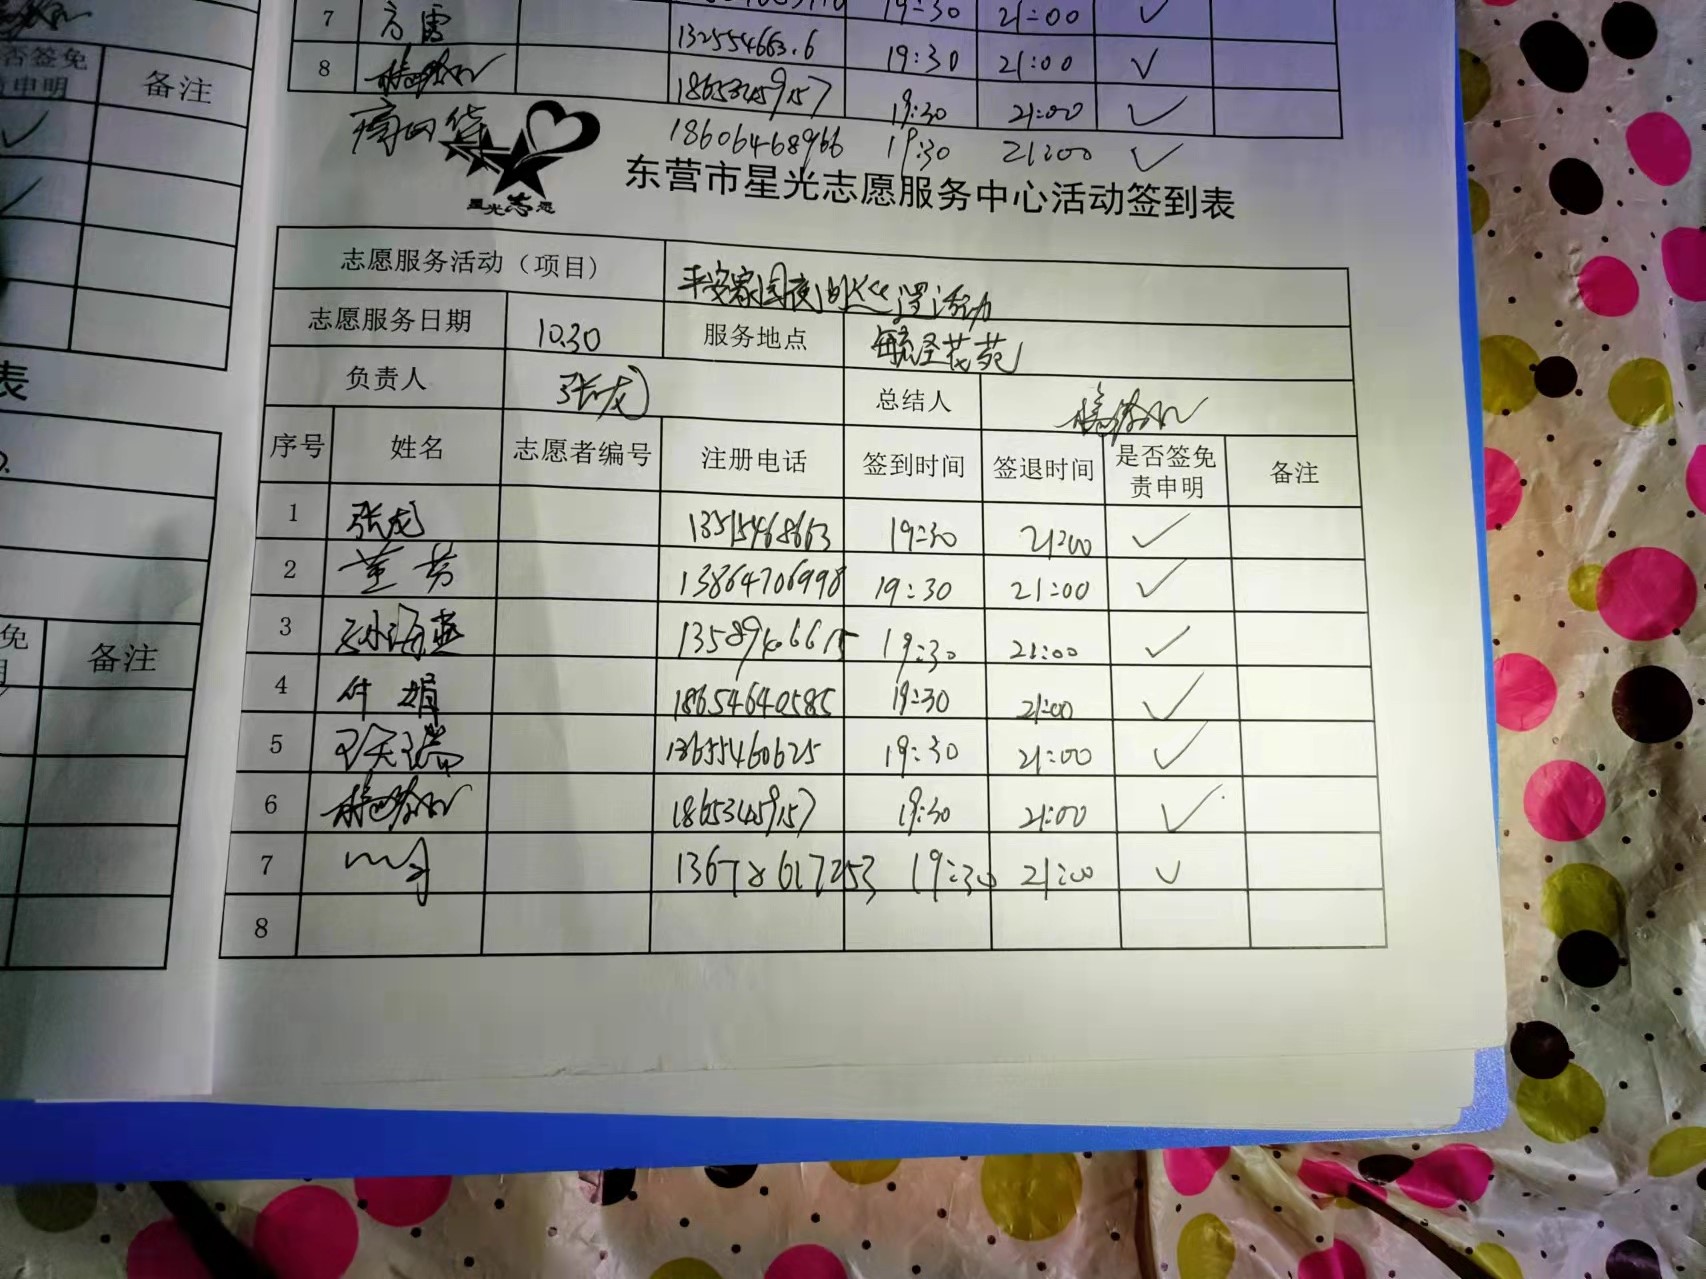 7 方雷 19:30 21:00 ✓
8 132554663.6 19:30 21:00 ✓
18653459157 19:30 21:00 ✓
18606468966 19:30 21:00 ✓
星光志愿
东营市星光志愿服务中心活动签到表
志愿服务活动（项目） 平安家园夜间巡逻活动
志愿服务日期 10.30 服务地点 毓圣花苑
负责人 张龙 总结人
序号 姓名 志愿者编号 注册电话 签到时间 签退时间 是否签免责申明 备注
1 张龙 13515468663 19:30 21:00 ✓
2 董芳 13864706998 19:30 21:00 ✓
3 孙海燕 19:30 21:00 ✓
4 付娟 18654640585 19:30 21:00 ✓
5 王天瑞 13655460625 19:30 21:00 ✓
6 18653459157 19:30 21:00 ✓
7 19:30 21:00 ✓
8
否签免
责申明 备注
✓
✓
表
免 备注